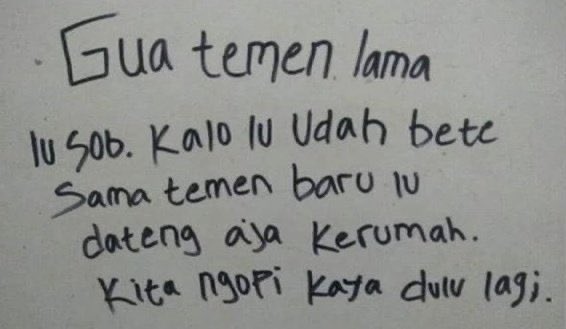 Gua temen lama
lu sob. Kalo lu Udah bete
Sama temen baru lu
dateng aja Kerumah.
Kita ngopi Kaya dulu lagi.